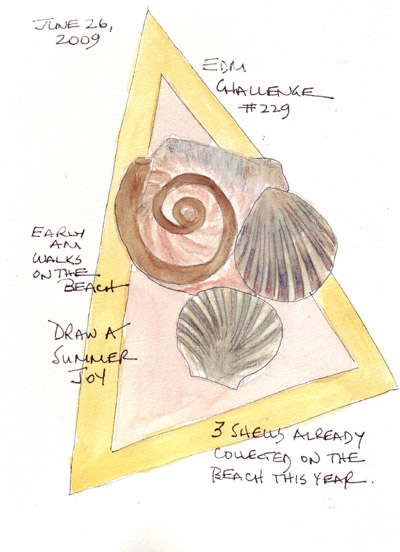 JUNE 26,
2009
EDM
CHALLENGE
#229
EARLY
AM
WALKS
ON THE
BEACH
DRAW A
SUMMER
JOY
3 SHELLS ALREADY
COLLECTED ON THE
BEACH THIS YEAR.